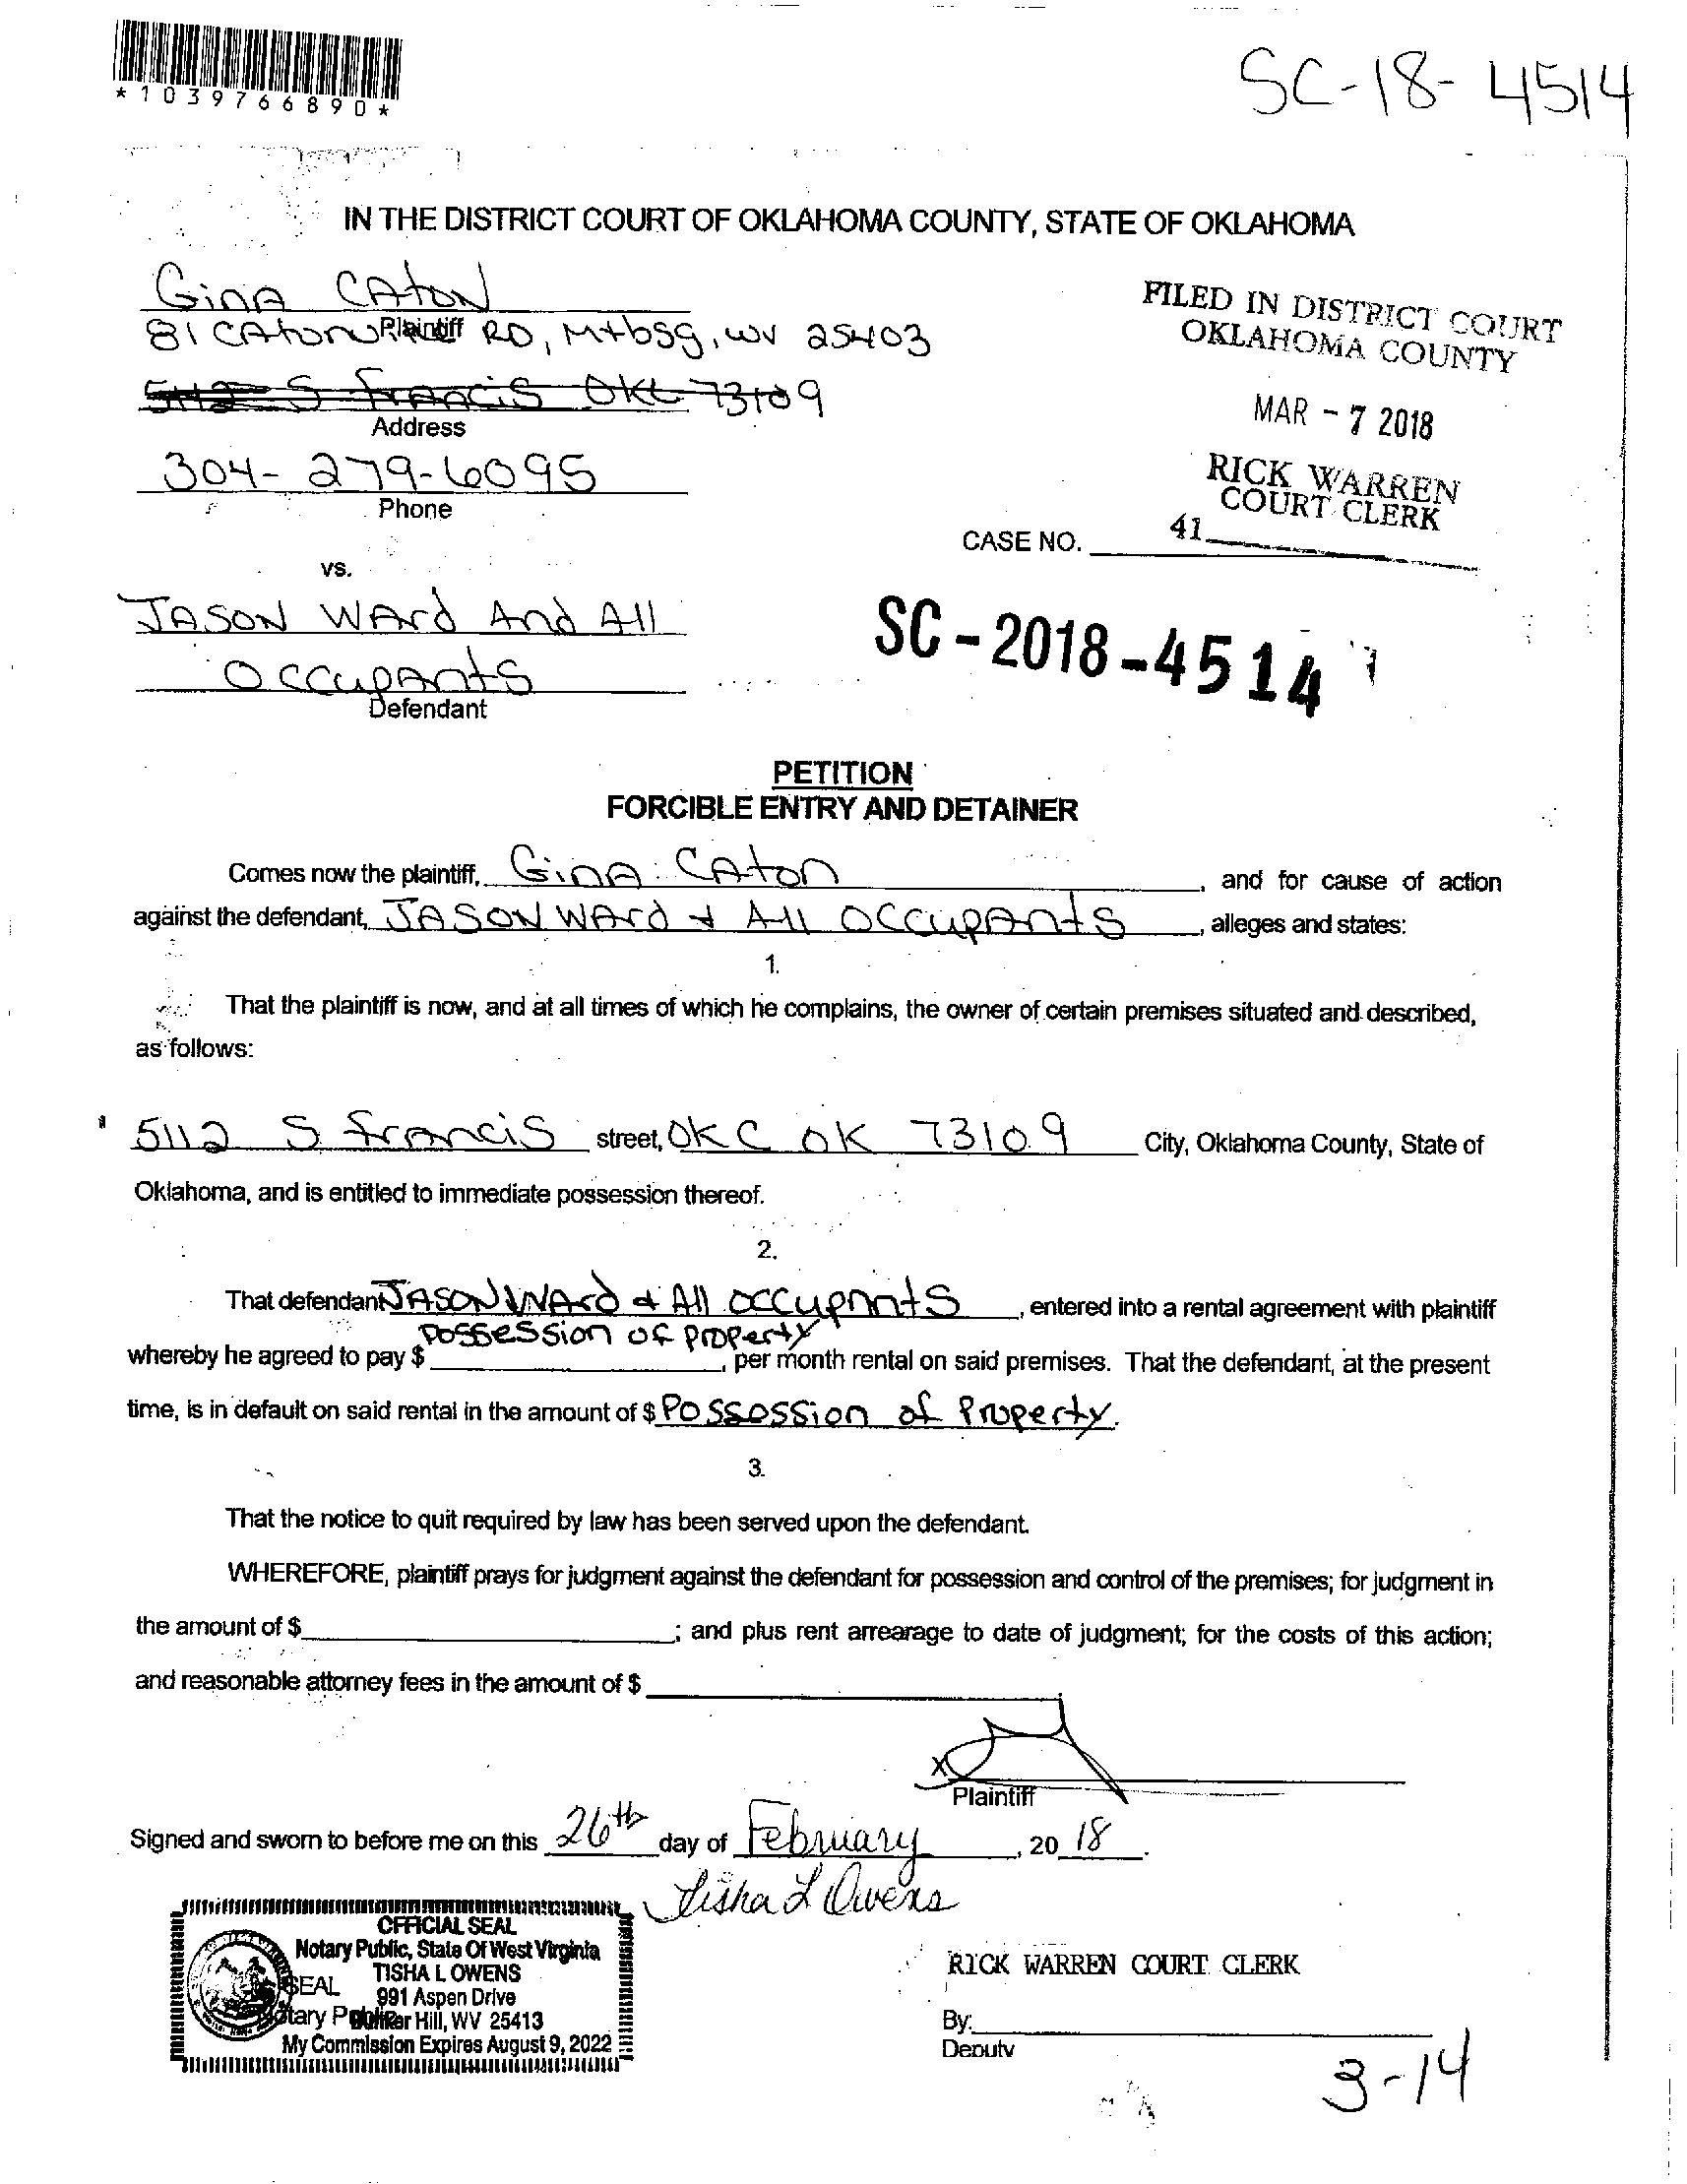 *1039766890*
SC-18-4514
IN THE DISTRICT COURT OF OKLAHOMA COUNTY, STATE OF OKLAHOMA
GinA CAtoN
Plaintiff
81 CAton RD, Mtbsg, WV 25403
5112 S Francis OKC 73109
Address
304-279-6095
Phone
FILED IN DISTRICT COURT
OKLAHOMA COUNTY
MAR - 7 2018
RICK WARREN
COURT CLERK
41
CASE NO.
vs.
JASON WArd And All
OccupAnts
Defendant
SC-2018-4514
PETITION
FORCIBLE ENTRY AND DETAINER
Comes now the plaintiff, GinA CAton, and for cause of action
against the defendant, JASON WArd + All OccupAnts, alleges and states:
1.
That the plaintiff is now, and at all times of which he complains, the owner of certain premises situated and described,
as follows:
5112 S Francis street, OKC OK 73109 City, Oklahoma County, State of
Oklahoma, and is entitled to immediate possession thereof.
2.
That defendant JASON WArd & All occupAnts, entered into a rental agreement with plaintiff
whereby he agreed to pay $ possession of property, per month rental on said premises. That the defendant, at the present
time, is in default on said rental in the amount of $ Possession of Property.
3.
That the notice to quit required by law has been served upon the defendant.
WHEREFORE, plaintiff prays for judgment against the defendant for possession and control of the premises; for judgment in
the amount of $ ; and plus rent arrearage to date of judgment; for the costs of this action;
and reasonable attorney fees in the amount of $
x
Plaintiff
Signed and sworn to before me on this 26th day of February, 20 18.
Tisha L Owens
OFFICIAL SEAL
Notary Public, State Of West Virginia
TISHA L OWENS
991 Aspen Drive
Bunker Hill, WV 25413
My Commission Expires August 9, 2022
SEAL
Notary Public
RICK WARREN COURT CLERK
By:
Deputy
3-14